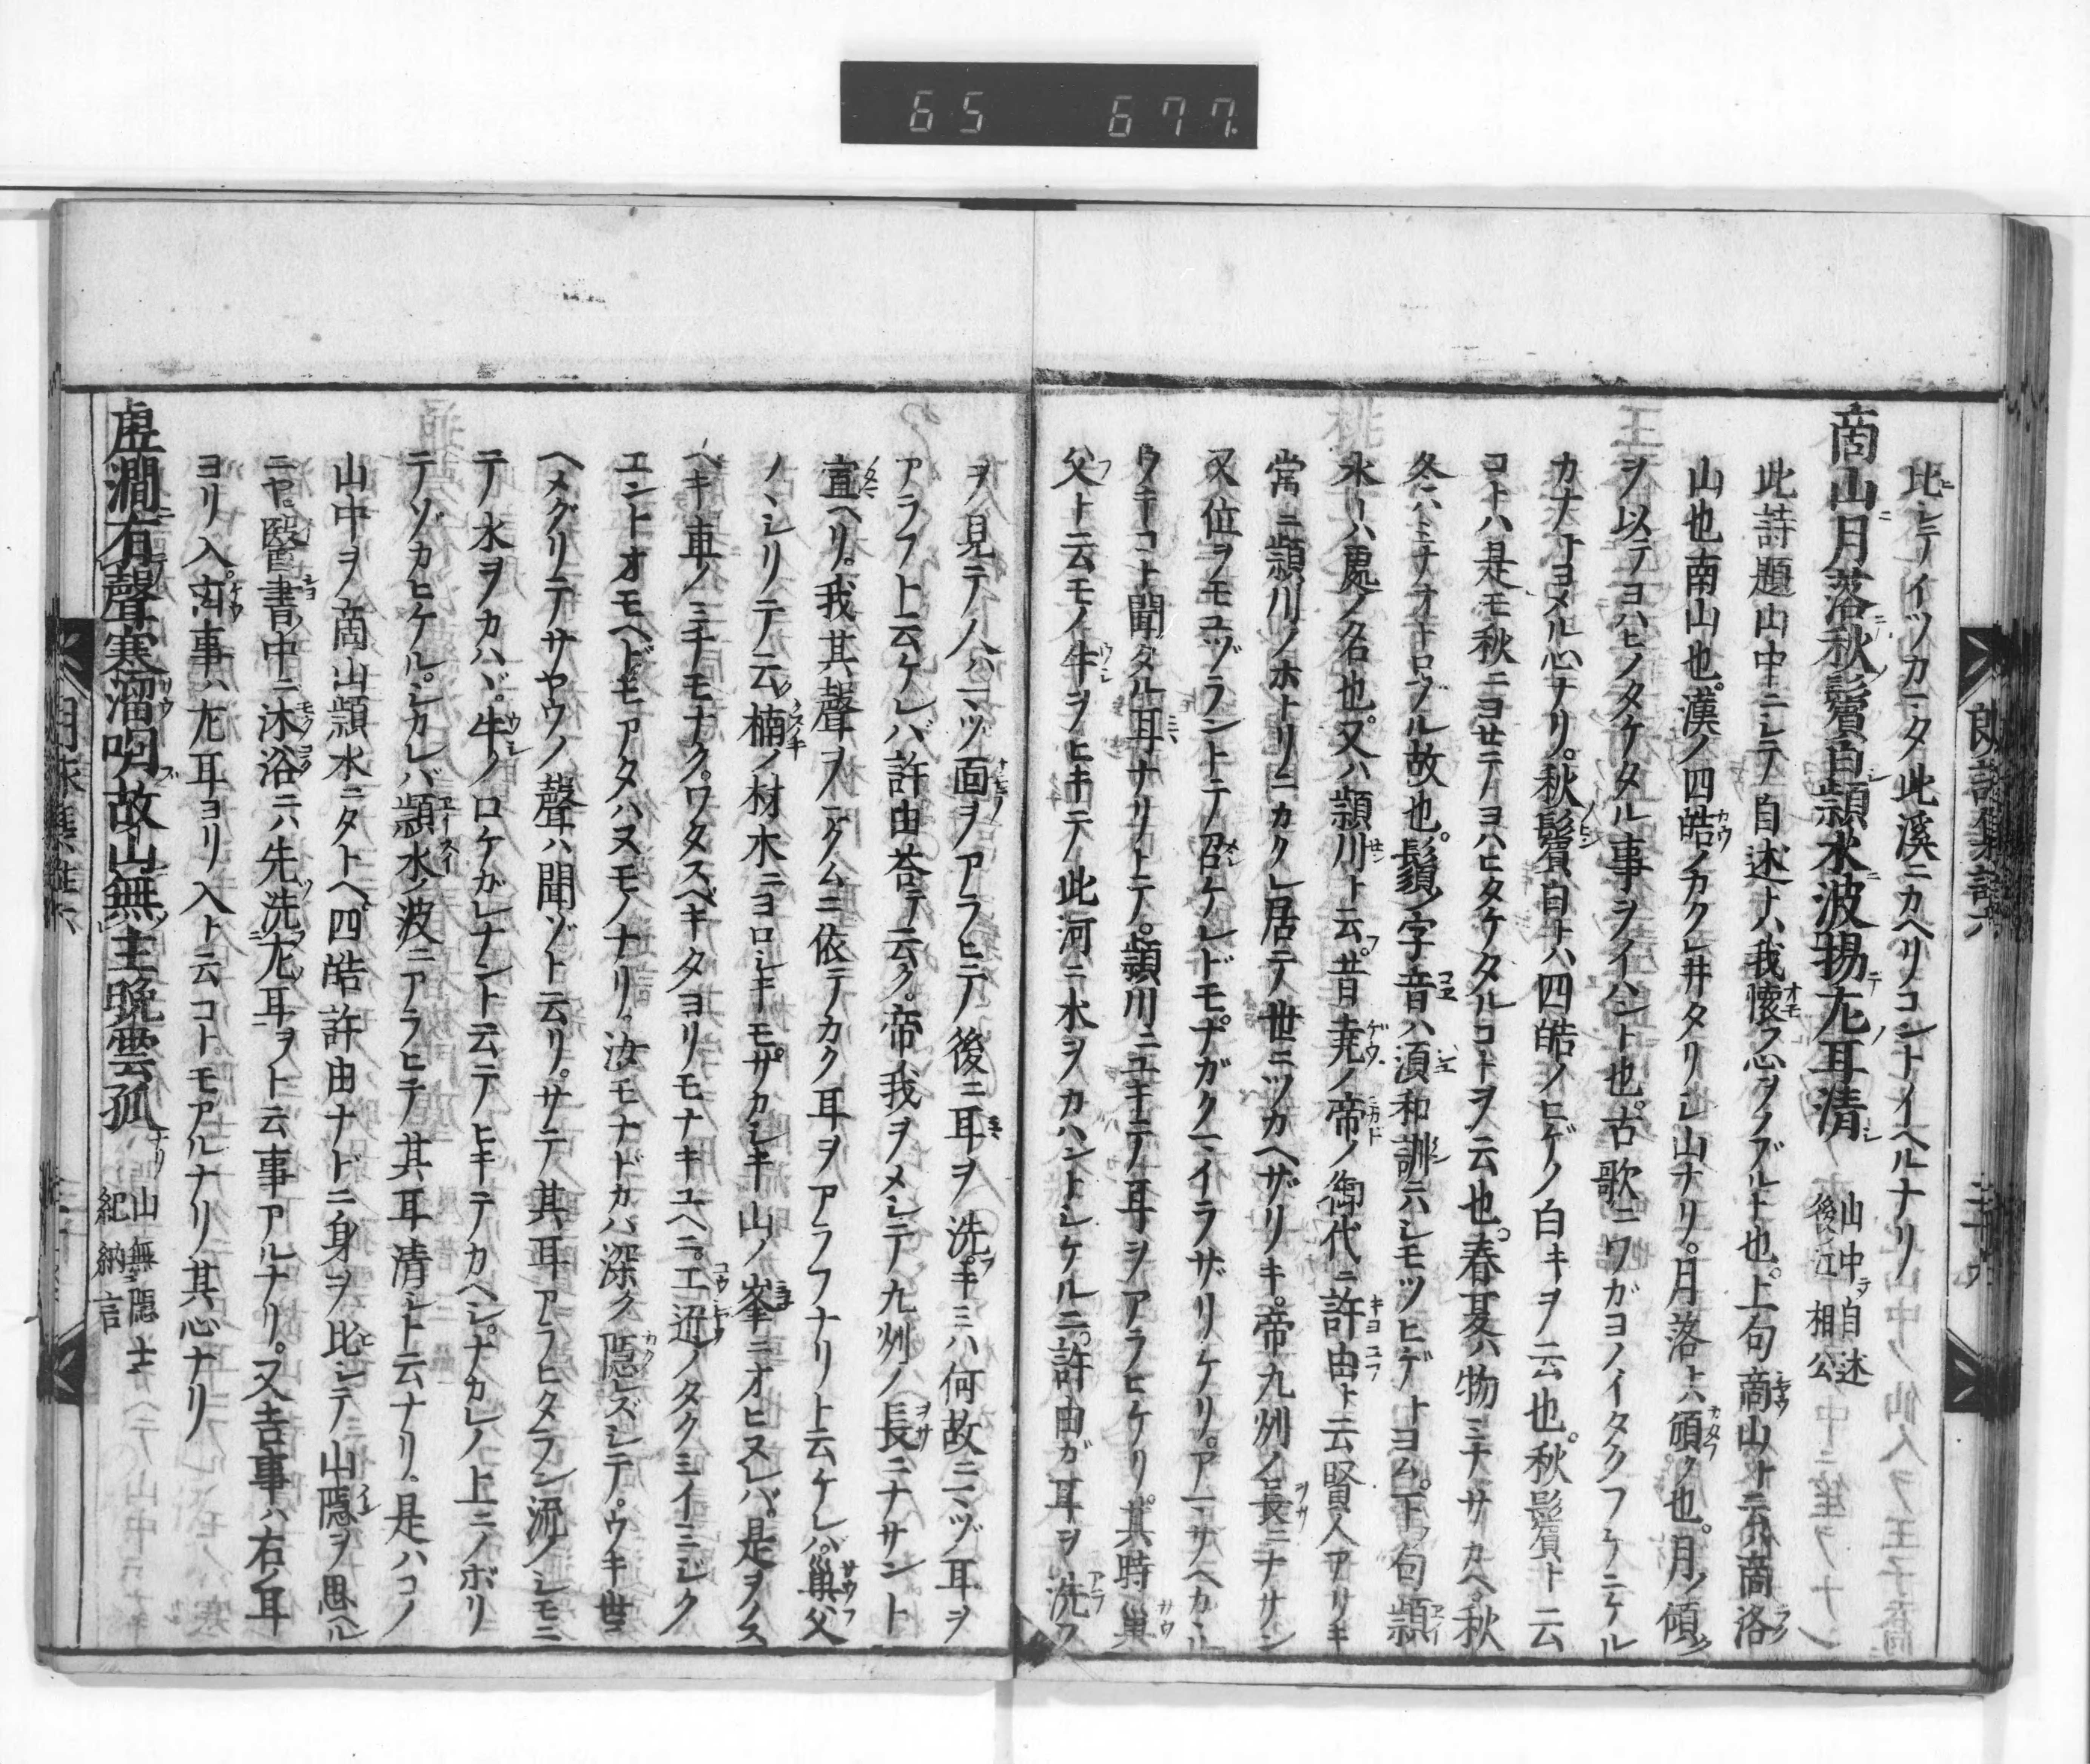 65 677.
比シテイツカマタ此溪ニカヘリコントイヘルナリ
商山月落秋鬢白頴水波揚左耳清
山中ヲ自述
後江相公
此詩題山中ニシテ自述トハ我懐フ心ヲノブルト也上句商山ト云ハ商洛
山也南山也漢ノ四皓ノカクレ井タリシ山ナリ月落トハ傾ク也月ノ傾ク
ヲ以テヨハヒノタケタル事ヲイハント也古歌ニワガヨノイタクフケニケル
カナトヨメル心ナリ秋鬢白トハ四皓ノヒゲノ白キヲ云也秋鬢ト云
コトハ是モ秋ニヨセテヨハヒタケタルコトヲ云也春夏ハ物ミナサカヘ秋
冬ハミナオトロヅル故也鬚ノ字音ハ湏和訓ニハシモツヒゲトヨム下ノ句頴
水ーハ處ノ名也又ハ頴川ト云昔堯ノ帝ノ御代ニ許由ト云賢人アリキ
常ニ頴川ノホトリニカクレ居テ世ニツカヘザリキ帝九州ノ長ニナサン
又位ヲモユヅラントテ召ケレドモナガクマイラザリケリアマサヘカヽル
ウキコト聞タル耳ナリトテ頴川ニユキテ耳ヲアラヒケリ其時巣
父ト云モノ牛ヲヒキテ此河ニ水ヲカハントシケルニ許由ガ耳ヲ洗フ
ヲ見テ人ハマヅ面ヲアラヒテ後ニ耳ヲ洗キミハ何故ニマヅ耳ヲ
アラフト云ケレバ許由荅テ云ク帝我ヲメシテ九州ノ長ニナサント
宣ヘリ我其聲ヲノアクムニ依テカク耳ヲアラフナリト云ケレバ巣父
ノヽシリテ云楠ノ材木ニヨロシキモサカシキ山ノ峯ニオヒヌレバ是ヲノス
ベキ車ノミチモナクワタスベキタヨリモナキユヘニ工迊ノタクミイミジク
エントオモヘドモアタハヌモノナリ汝モナドカバ深ク隠レズシテウキ世ニ
ヘメグリテサヤウノ聲ハ聞ゾト云リサテ其耳アラヒタラン流ノシモニ
テ水ヲカハヾ牛ノロケガレナント云テヒキテカヘシナカレノ上ニノボリ
テゾカヒケルシカレバ頴水ノ波ニアラヒテ其耳清シト云ナリ是ハコノ
山中ヲ商山頴水ニタトヘ四皓許由ナドニ身ヲ比シテ山隠ヲ思ヘル
ニヤ醫書ノ中ニ沐浴ニハ先洗左耳ヲト云事アルナリ又吉事ハ右ノ耳
ヨリ入㐫事ハ左耳ヨリ入ト云コトモアルナリ其心ナリ
虚澗有聲寒溜咽故山無主晩雲孤
山無隠士
紀納言